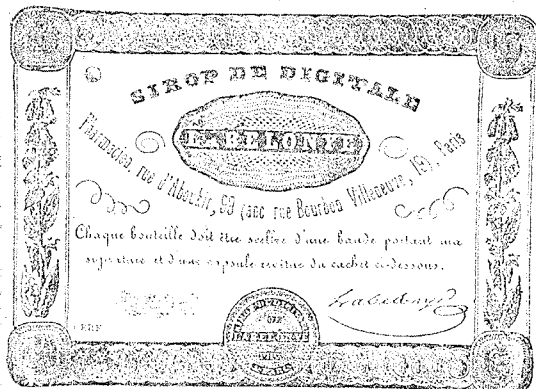 SIROP DE DIGITALE
LABELONYE
Pharmacien, rue d'Aboukir, 99 (anc. rue Bourbon Villeneuve, 19), Paris
Chaque bouteille doit être scellée d'une bande portant ma
signature et d'une capsule revêtue du cachet ci-dessous.
Labelonye
DE
LABELONYE
PARIS